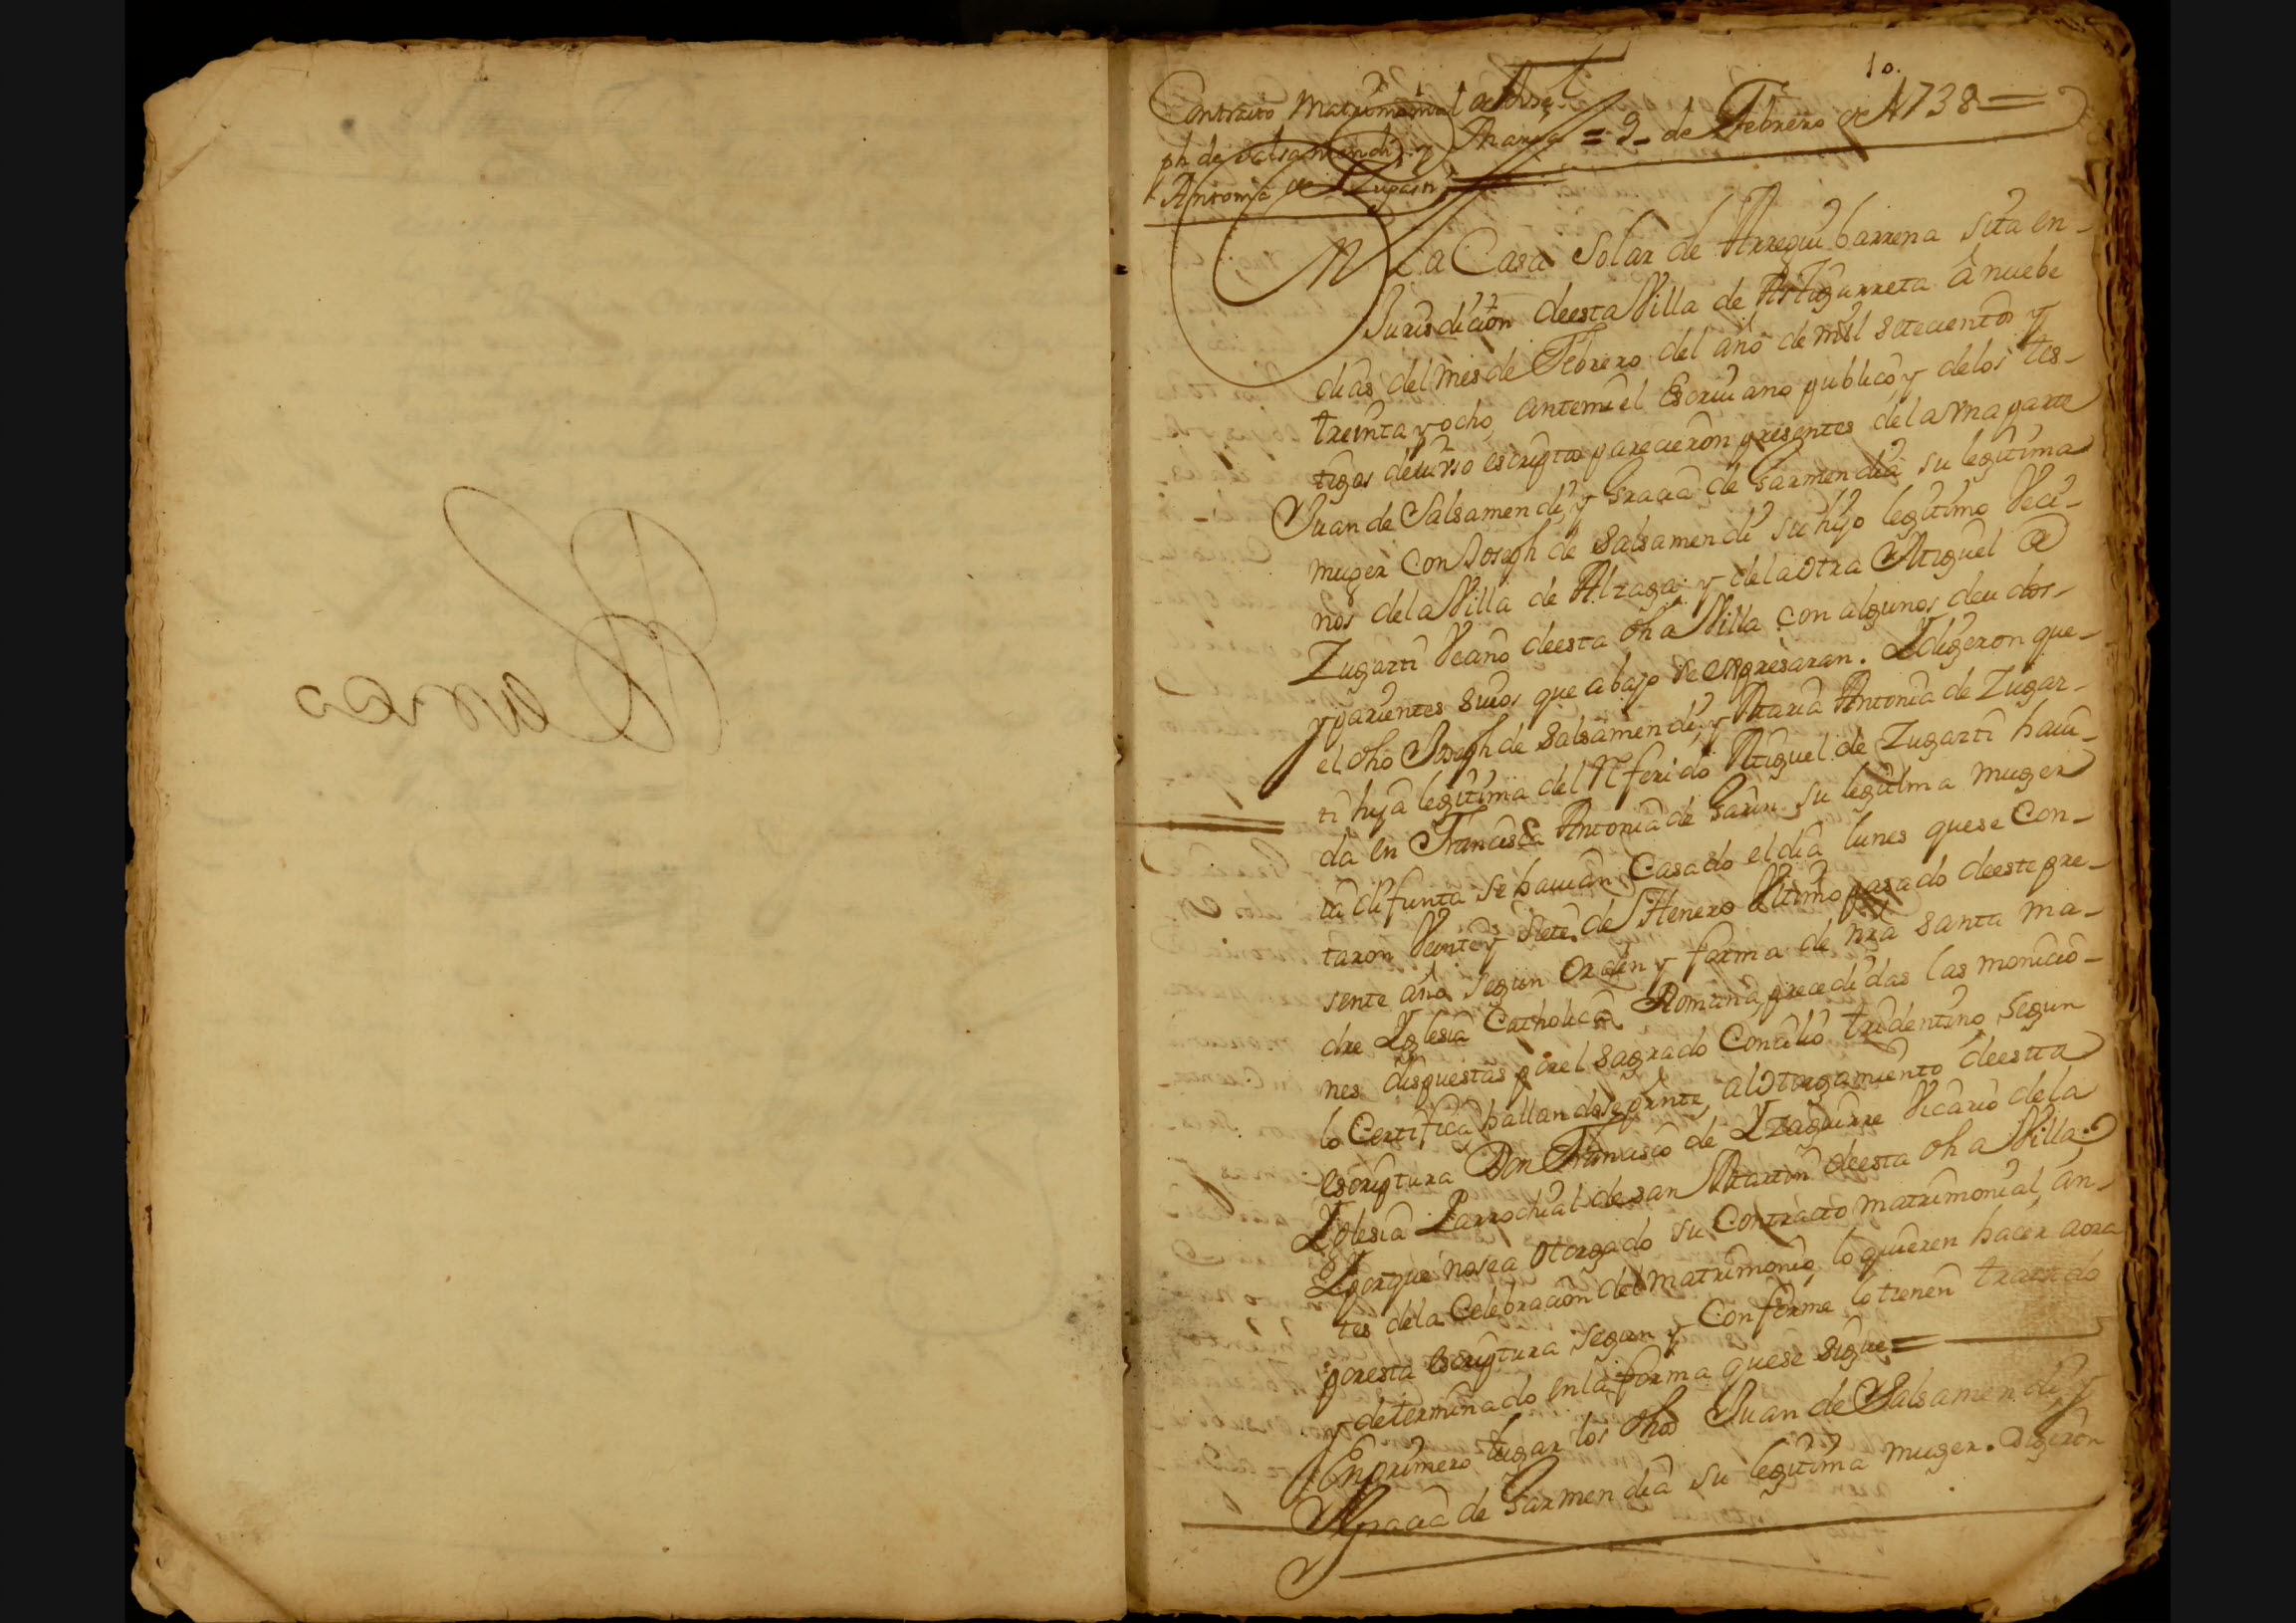 10.
Contrato Matrimonial de Jose-
ph de Salsamendi, y Maria = 9_ de Febrero de 1738 =
Antonia de Zugarti
En La Casa Solar de Arregui barrena sita en-
Jurisdicion deesta Villa de Astigarreta à nuebe
dias del mes de Febrero del año de mil setecientos y
treinta y ocho, antemi el Escriuano publico y delos tes-
tigos deiusso escriptos parecieron presentes dela vna parte
Juan de Salsamendi, y Gracia de Garmendia su legitima
muger con Joseph de Salsamendi su hijo legitimo Veci-
nos dela Villa de Alzaga; y dela otra Miguel de
Zugarti Vecino deesta dha Villa con algunos deudos-
y parientes suios que abajo se expresaran. Y digeron que-
el dho Joseph de Salsamendi, y Maria Antonia de Zugar-
ti hija legitima del Referido Miguel de Zugarti haui-
da en Francisca Antonia de Garin su legitima muger
ia difunta se hauian Casado el dia lunes que se Con-
taron Veinte y siete de Henero Vltimo pasado deeste pre-
sente año segun orden y forma de nra santa ma-
dre Yglesia Catholica Romana, precedidas las monicio-
nes dispuestas por el sagrado Concilio tridentino, segun
lo Certifica hallandose pressnte, al otorgamiento deesta
escriptura Don Francisco de Yzaguirre Vicario dela
Yglesia Parrochial de san Martin deesta dha Villa.
Y porque no sea otorgado su Contracto matrimonial, an-
tes dela Celebracion del matrimonio, lo quieren hacer aora
por esta escriptura segun y Conforme lo tienen tratado
y determinado en la forma que se sigue =
En primero lugar los dhos Juan de Salsamendi, y
Gracia de Garmendia su legitima muger. Digeron